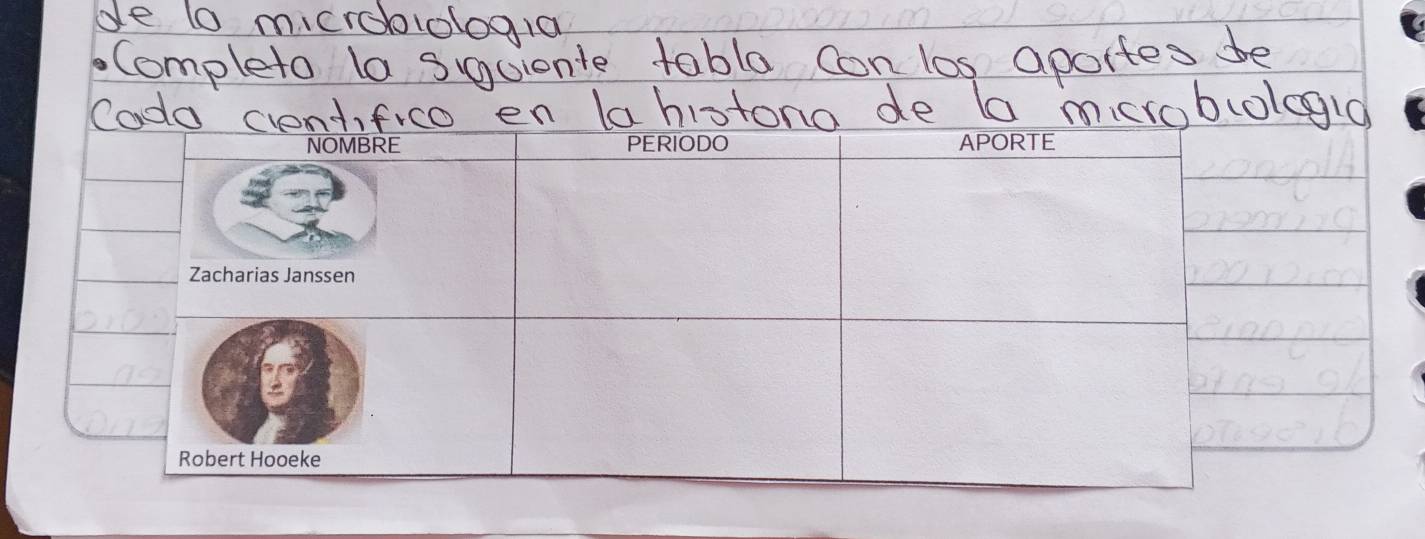 de la microbiologia
•Completa la siguiente tabla con los aportes de
Cada cientifico en la historia de la microbiologia
NOMBRE PERIODO APORTE
Zacharias Janssen
Robert Hooeke